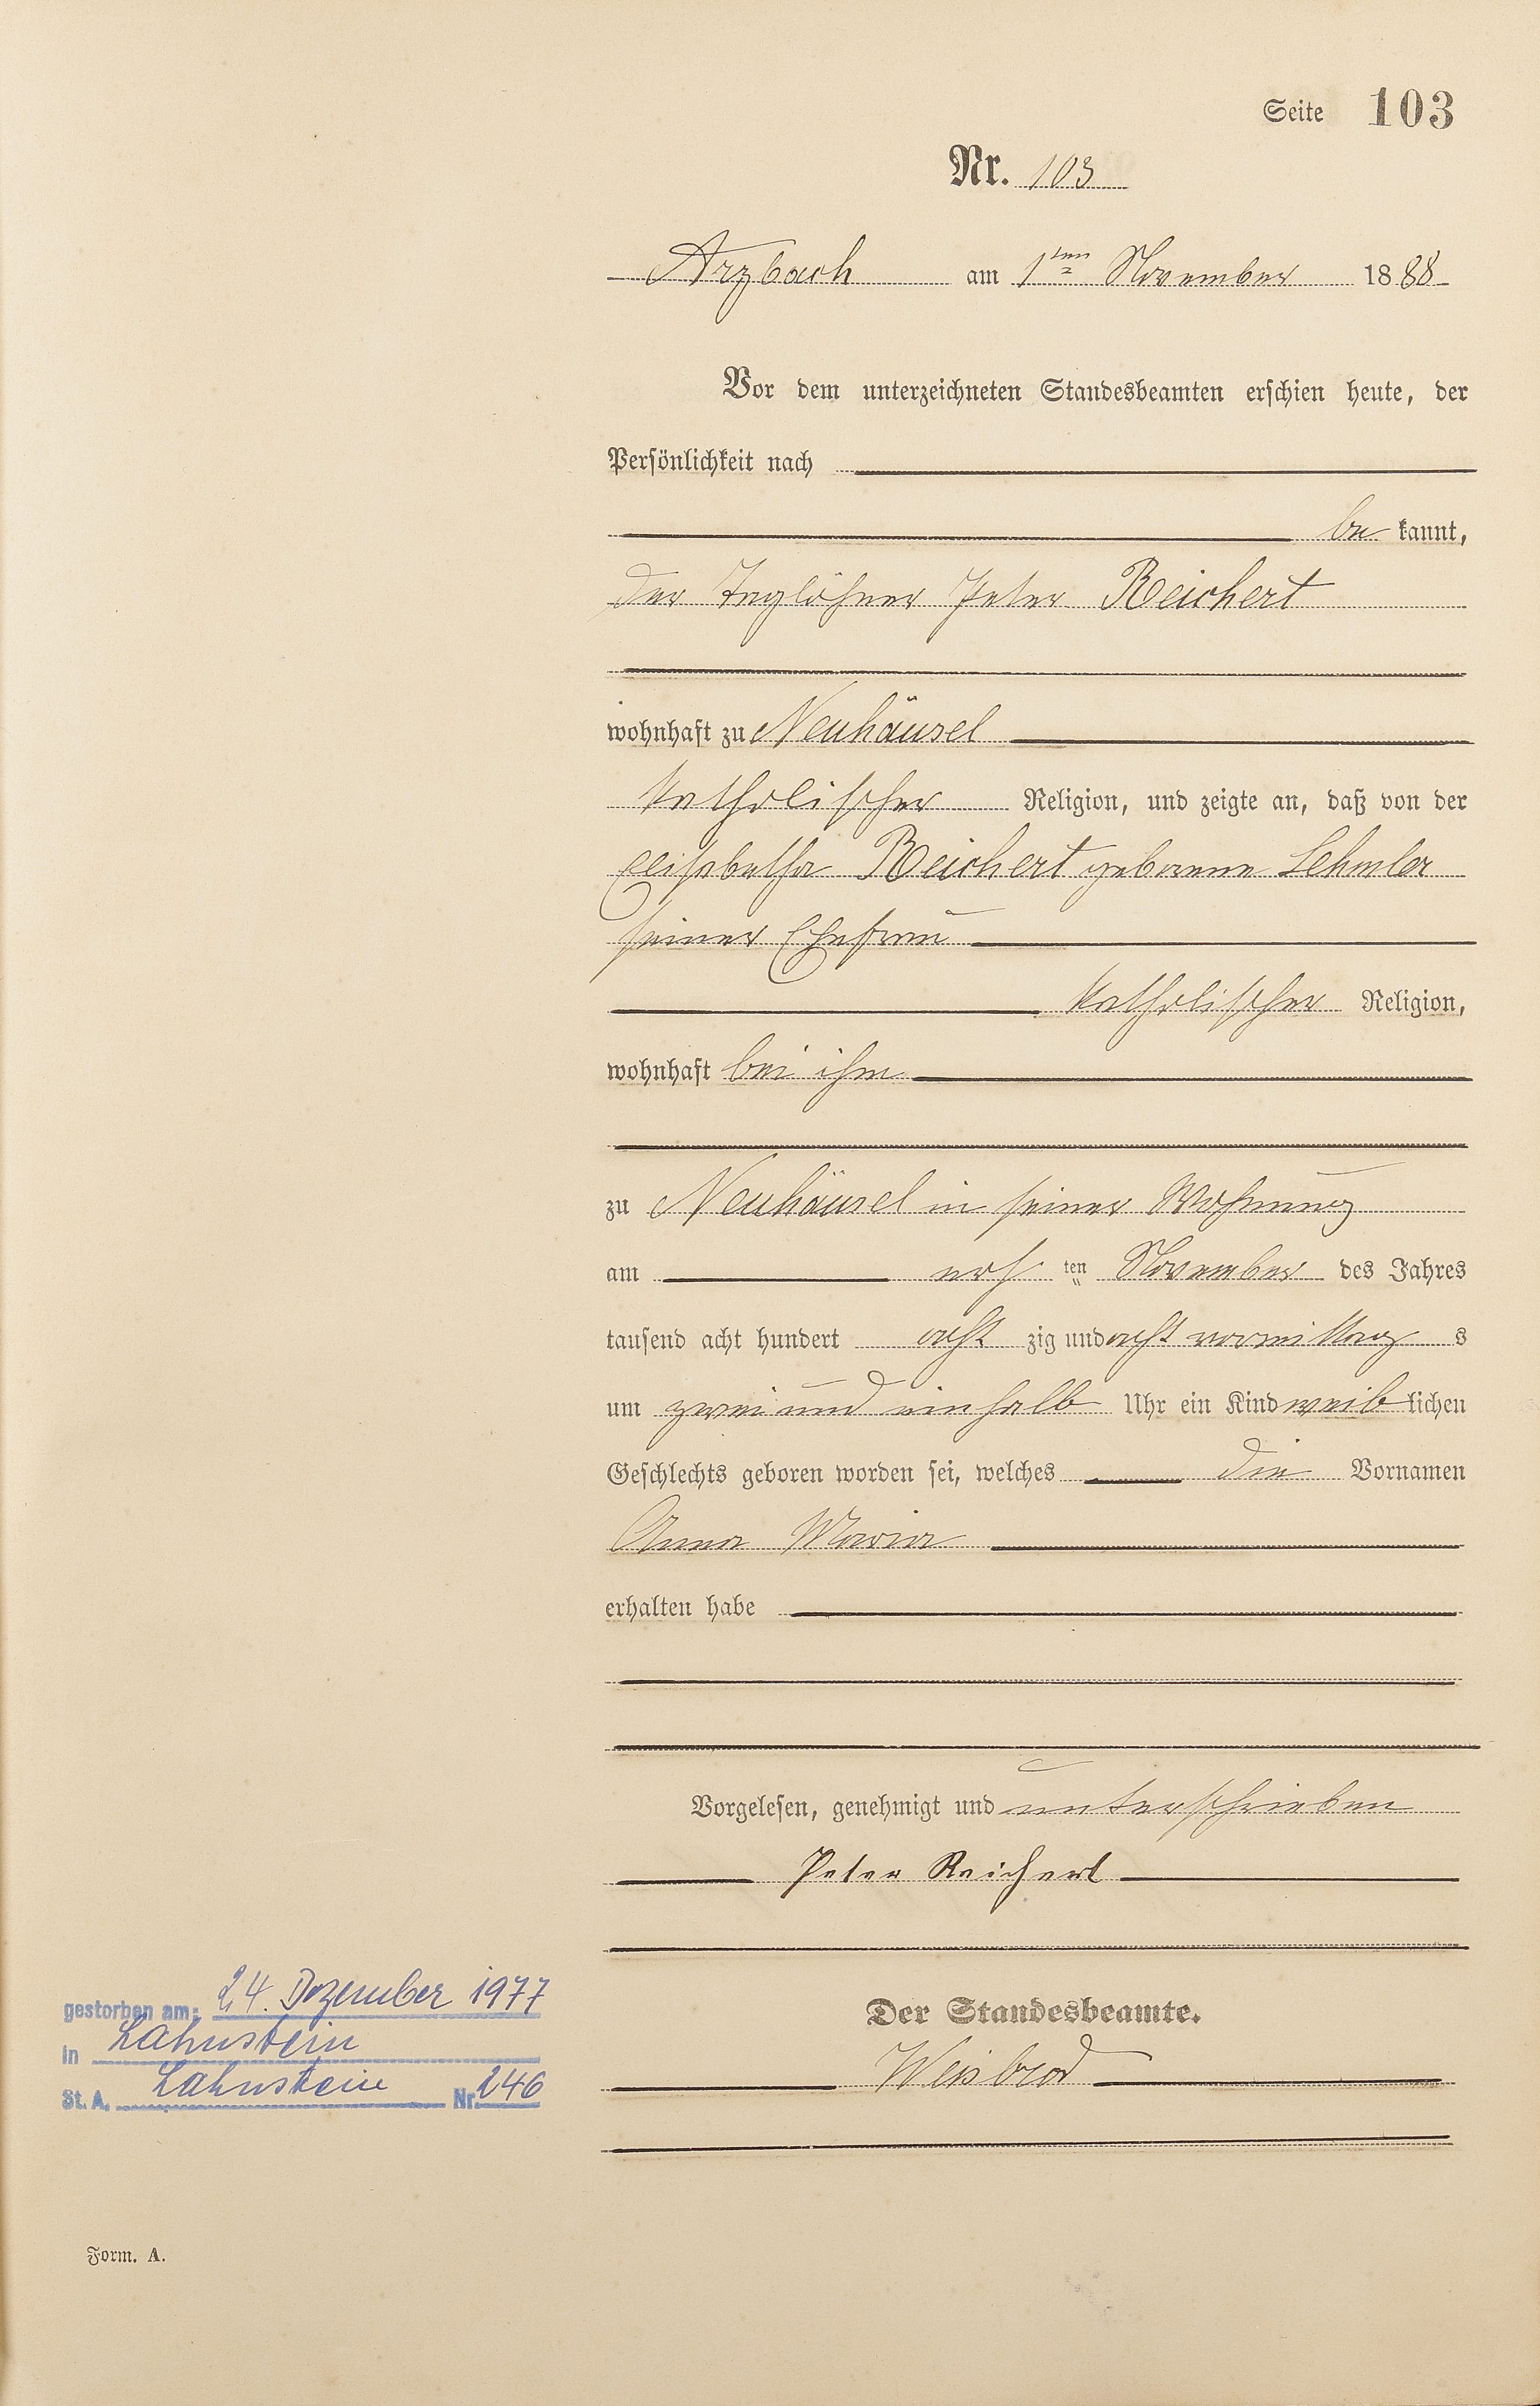 Seite 103
Nr. 103
Arzbach am 1ten November 1888
Vor dem unterzeichneten Standesbeamten erschien heute, der
Persönlichkeit nach
be kannt,
der Taglöhner Peter Reichert
wohnhaft zu Neuhäusel
katholischer Religion, und zeigte an, daß von der
Elisabetha Reichert geborene Lehmler
seiner Ehefrau
katholischer Religion,
wohnhaft bei ihm
zu Neuhäusel in seiner Wohnung
am ersten November des Jahres
tausend acht hundert acht zig und acht vormittags
um zwei und ein halb Uhr ein Kind weiblichen
Geschlechts geboren worden sei, welches die Vornamen
Anna Maria
erhalten habe
Vorgelesen, genehmigt und unterschrieben
Peter Reichert
Der Standesbeamte.
Weisbrod
gestorben am: 24. Dezember 1977
in Lahnstein
St. A. Lahnstein Nr. 246
Form. A.